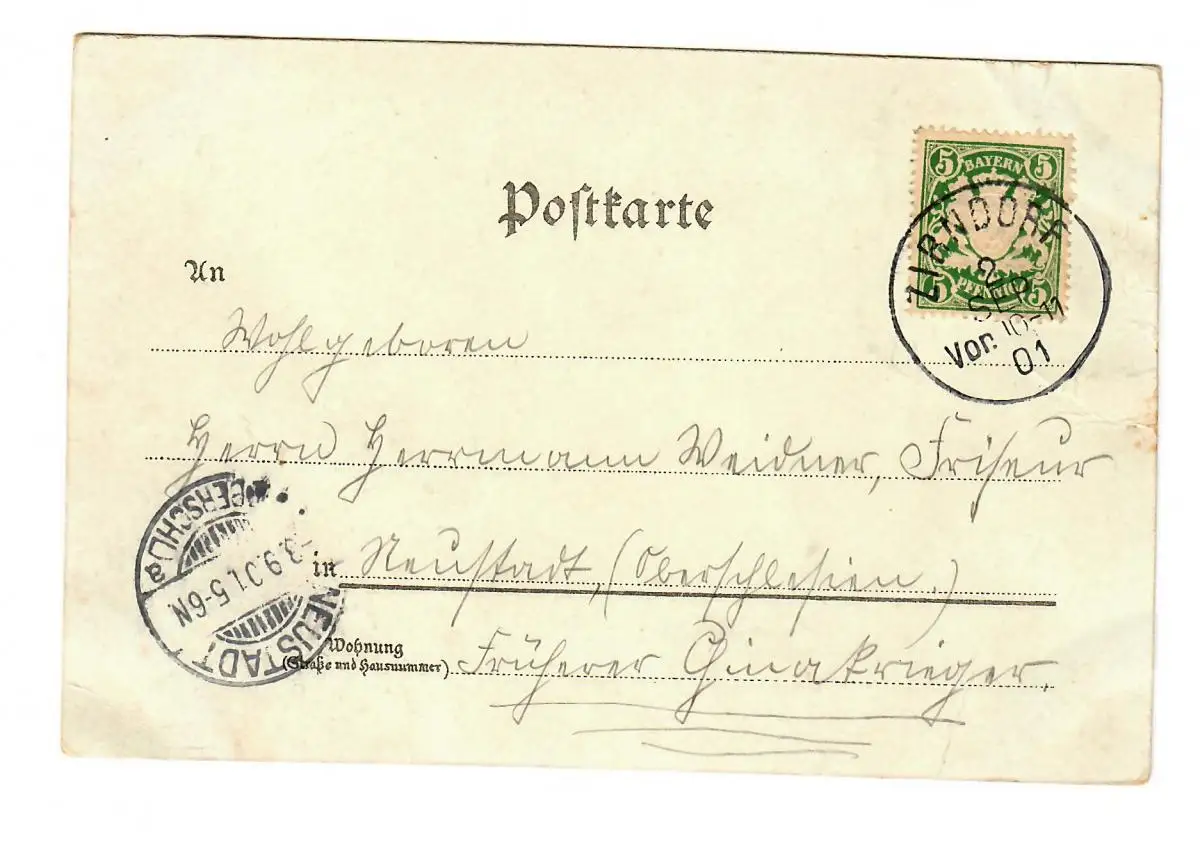 Postkarte
5 BAYERN 5
5 PFENNIG 5
ZIRNDORF
2
SEP
Vor. 10-11
01
An
Wohlgeboren
Herrn Herrmann Weidner, Friseur
in Neustadt, (Oberschlesien.)
Wohnung
(Straße und Hausnummer) Früherer Chinakrieger.
NEUSTADT OBERSCHL.
-3.9.01. 5-6N
a